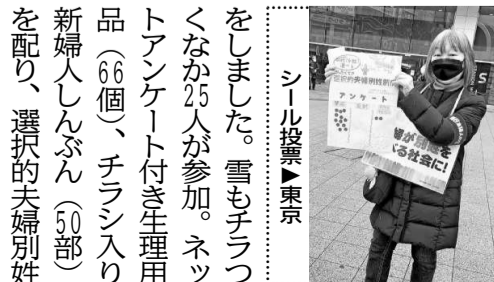 シール投票▶東京
をしました。雪もチラつ
くなか25人が参加。ネッ
トアンケート付き生理用
品（66個）、チラシ入り
新婦人しんぶん（50部）
を配り、選択的夫婦別姓
アンケート
る社会に!